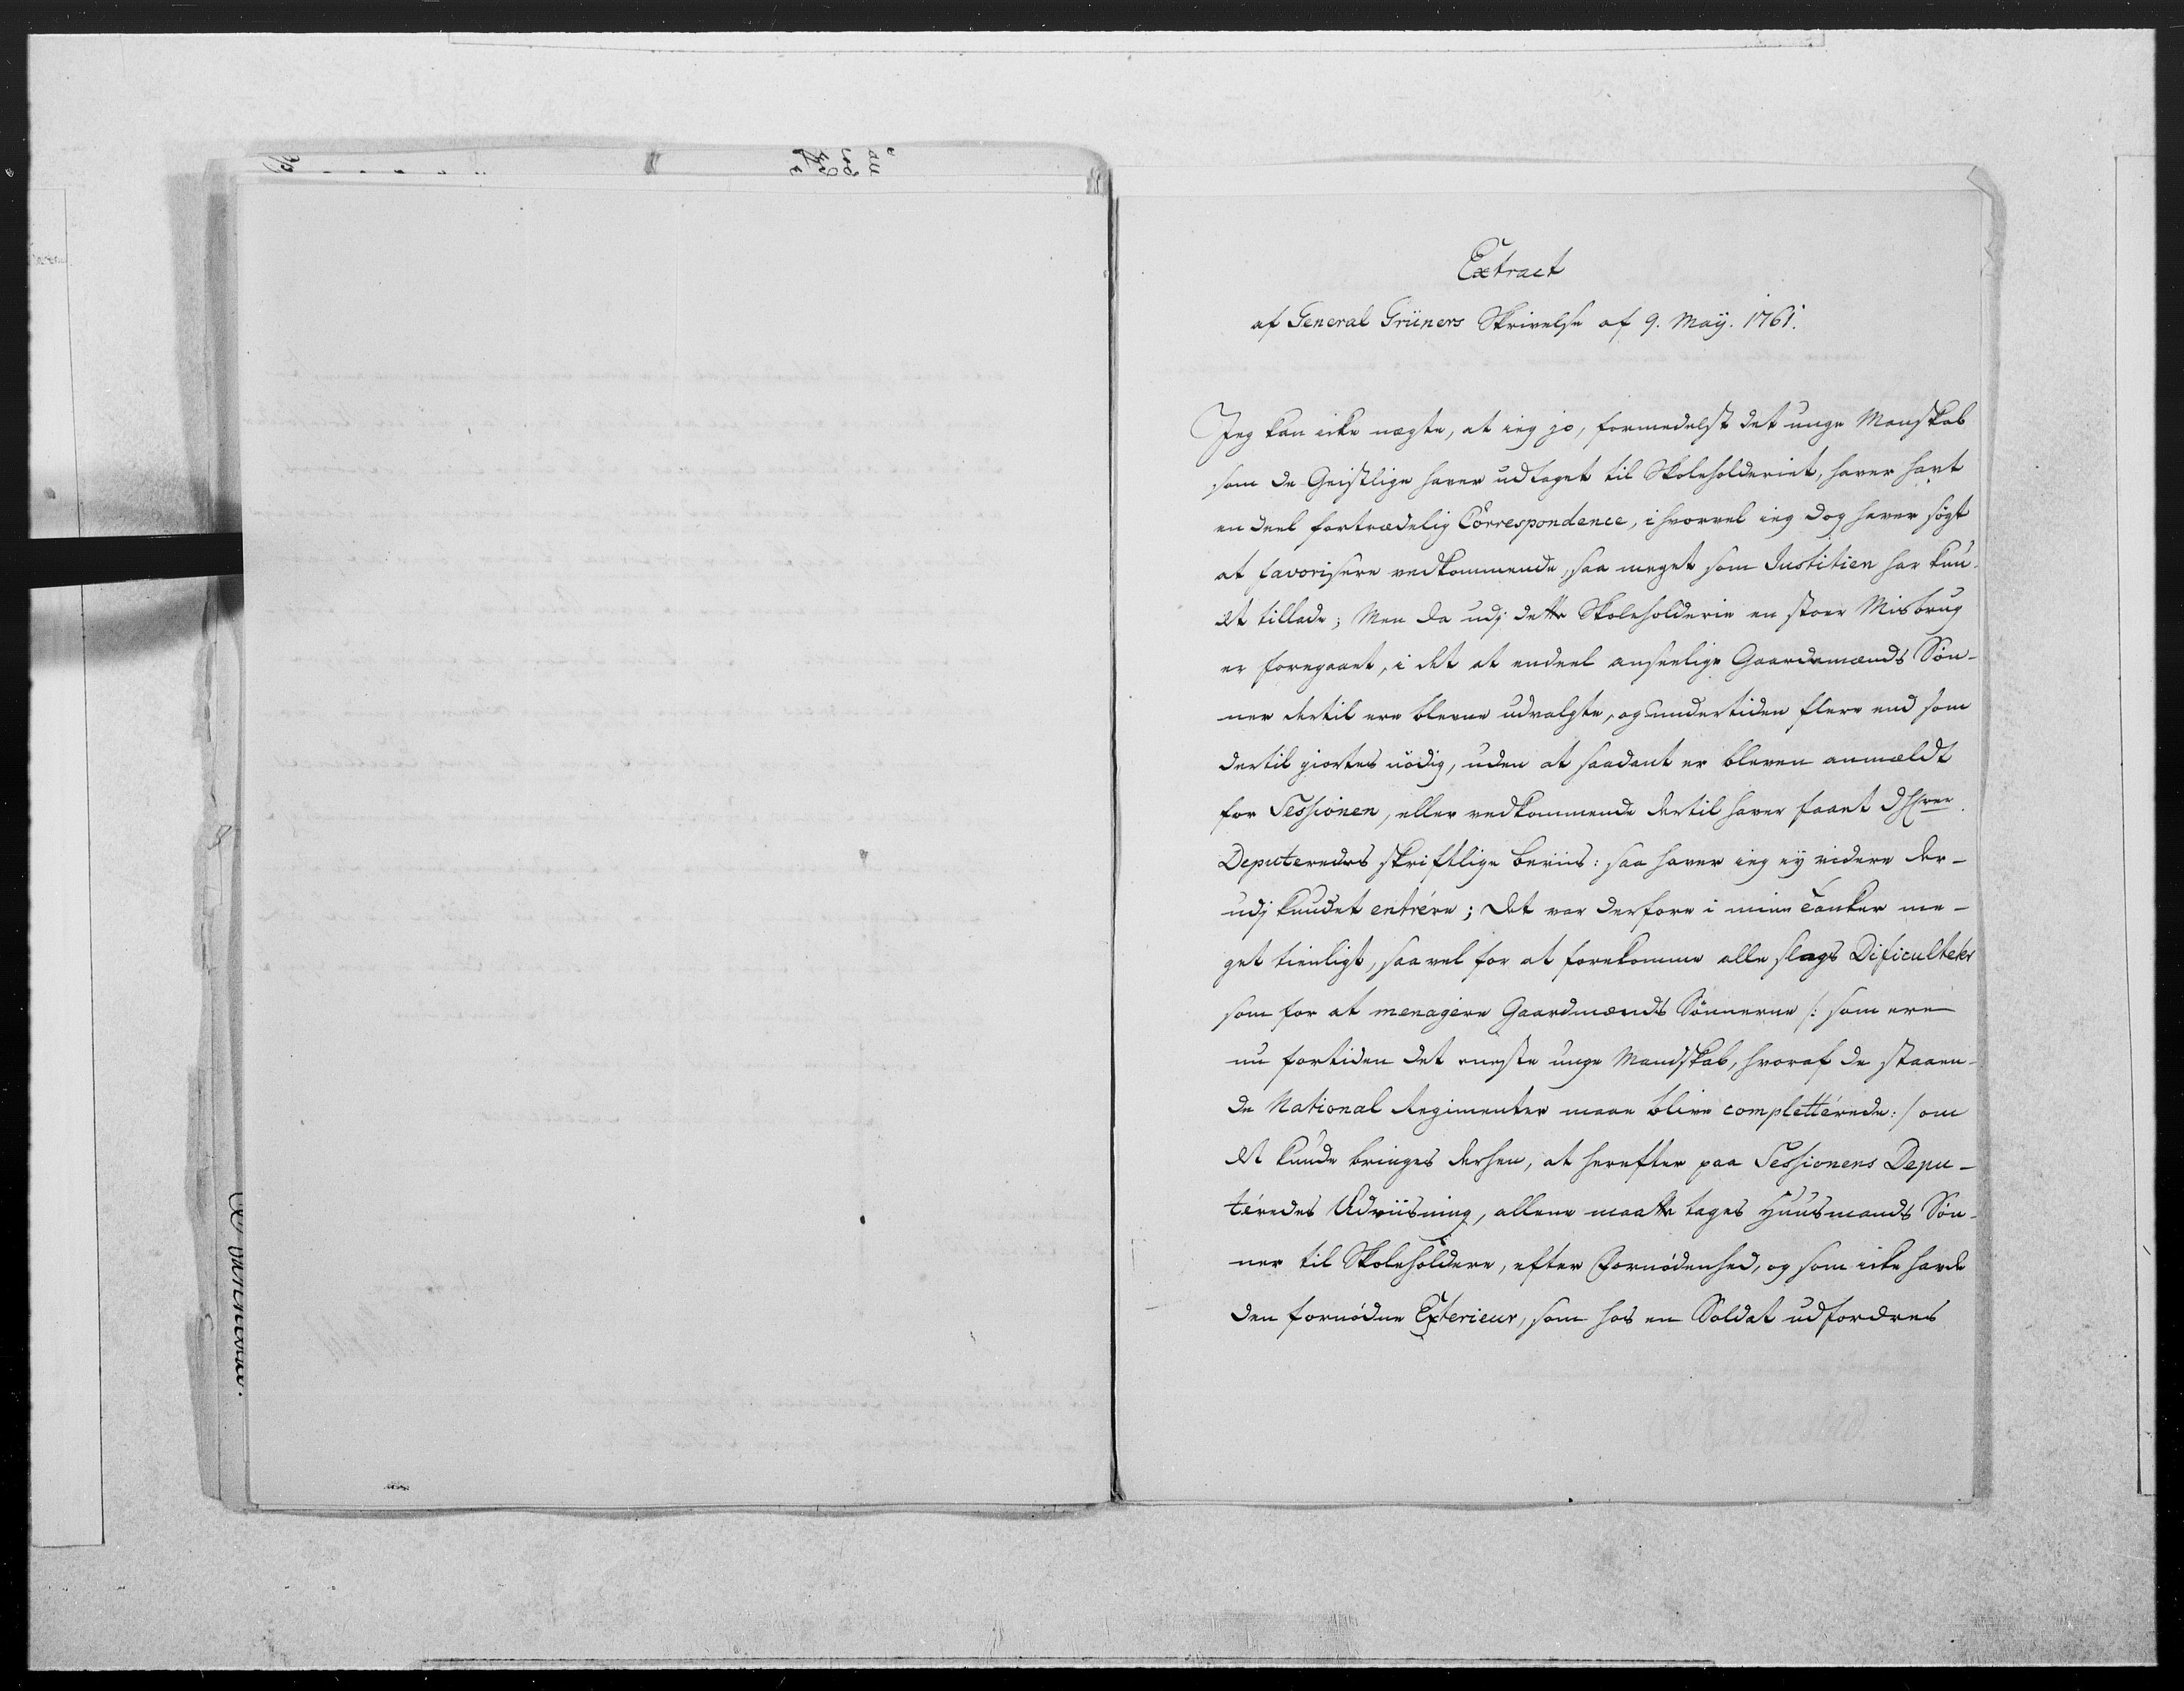 Extract
af General Grüners Skrivelse af 9. Maÿ. 1761.
Jeg kan icke nægte, at ieg jo, formedelst det unge Manskab
som de Geistlige haver udtaget til Skoleholderiet, haver havt
en deel fortrædelig Correspondence, i hvorvel ieg dog haver søgt
at favorisere vedkommende, saa meget som Justitien har kun-
det tillade; Men da udj dette Skoleholderie en stoer Misbrug
er foregaaet, i det at endeel anseelige Gaardemænds Søn-
ner dertil ere blevne udvalgte, og undertiden flere end som
dertil giortes nödig, uden at saadant er bleven anmældt
for Sessionen, eller vedkommende dertil haver faaet
Deputeredes skriftlige beviis: saa haver ieg ey videre der-
udj kundet entrére; Det var derfore i mine Tanker me-
get tienligt, saavel for at forekomme alle slags Dificulteter
som for at menagere Gaardmænds Sønnerne /: som ere
nu fortiden det eneste unge Mandskab, hvoraf de staaen-
de National Regimenter maae blive complettérede :/ om
det kunde bringes derhen, at herefter paa Sessionens Depu-
téredes Udviisning, allene maatte tages Huusmands Søn-
ner til Skoleholdere, efter Fornødenhed, og som icke havde
den fornødne Exterieur, som hos en Soldat udfordres